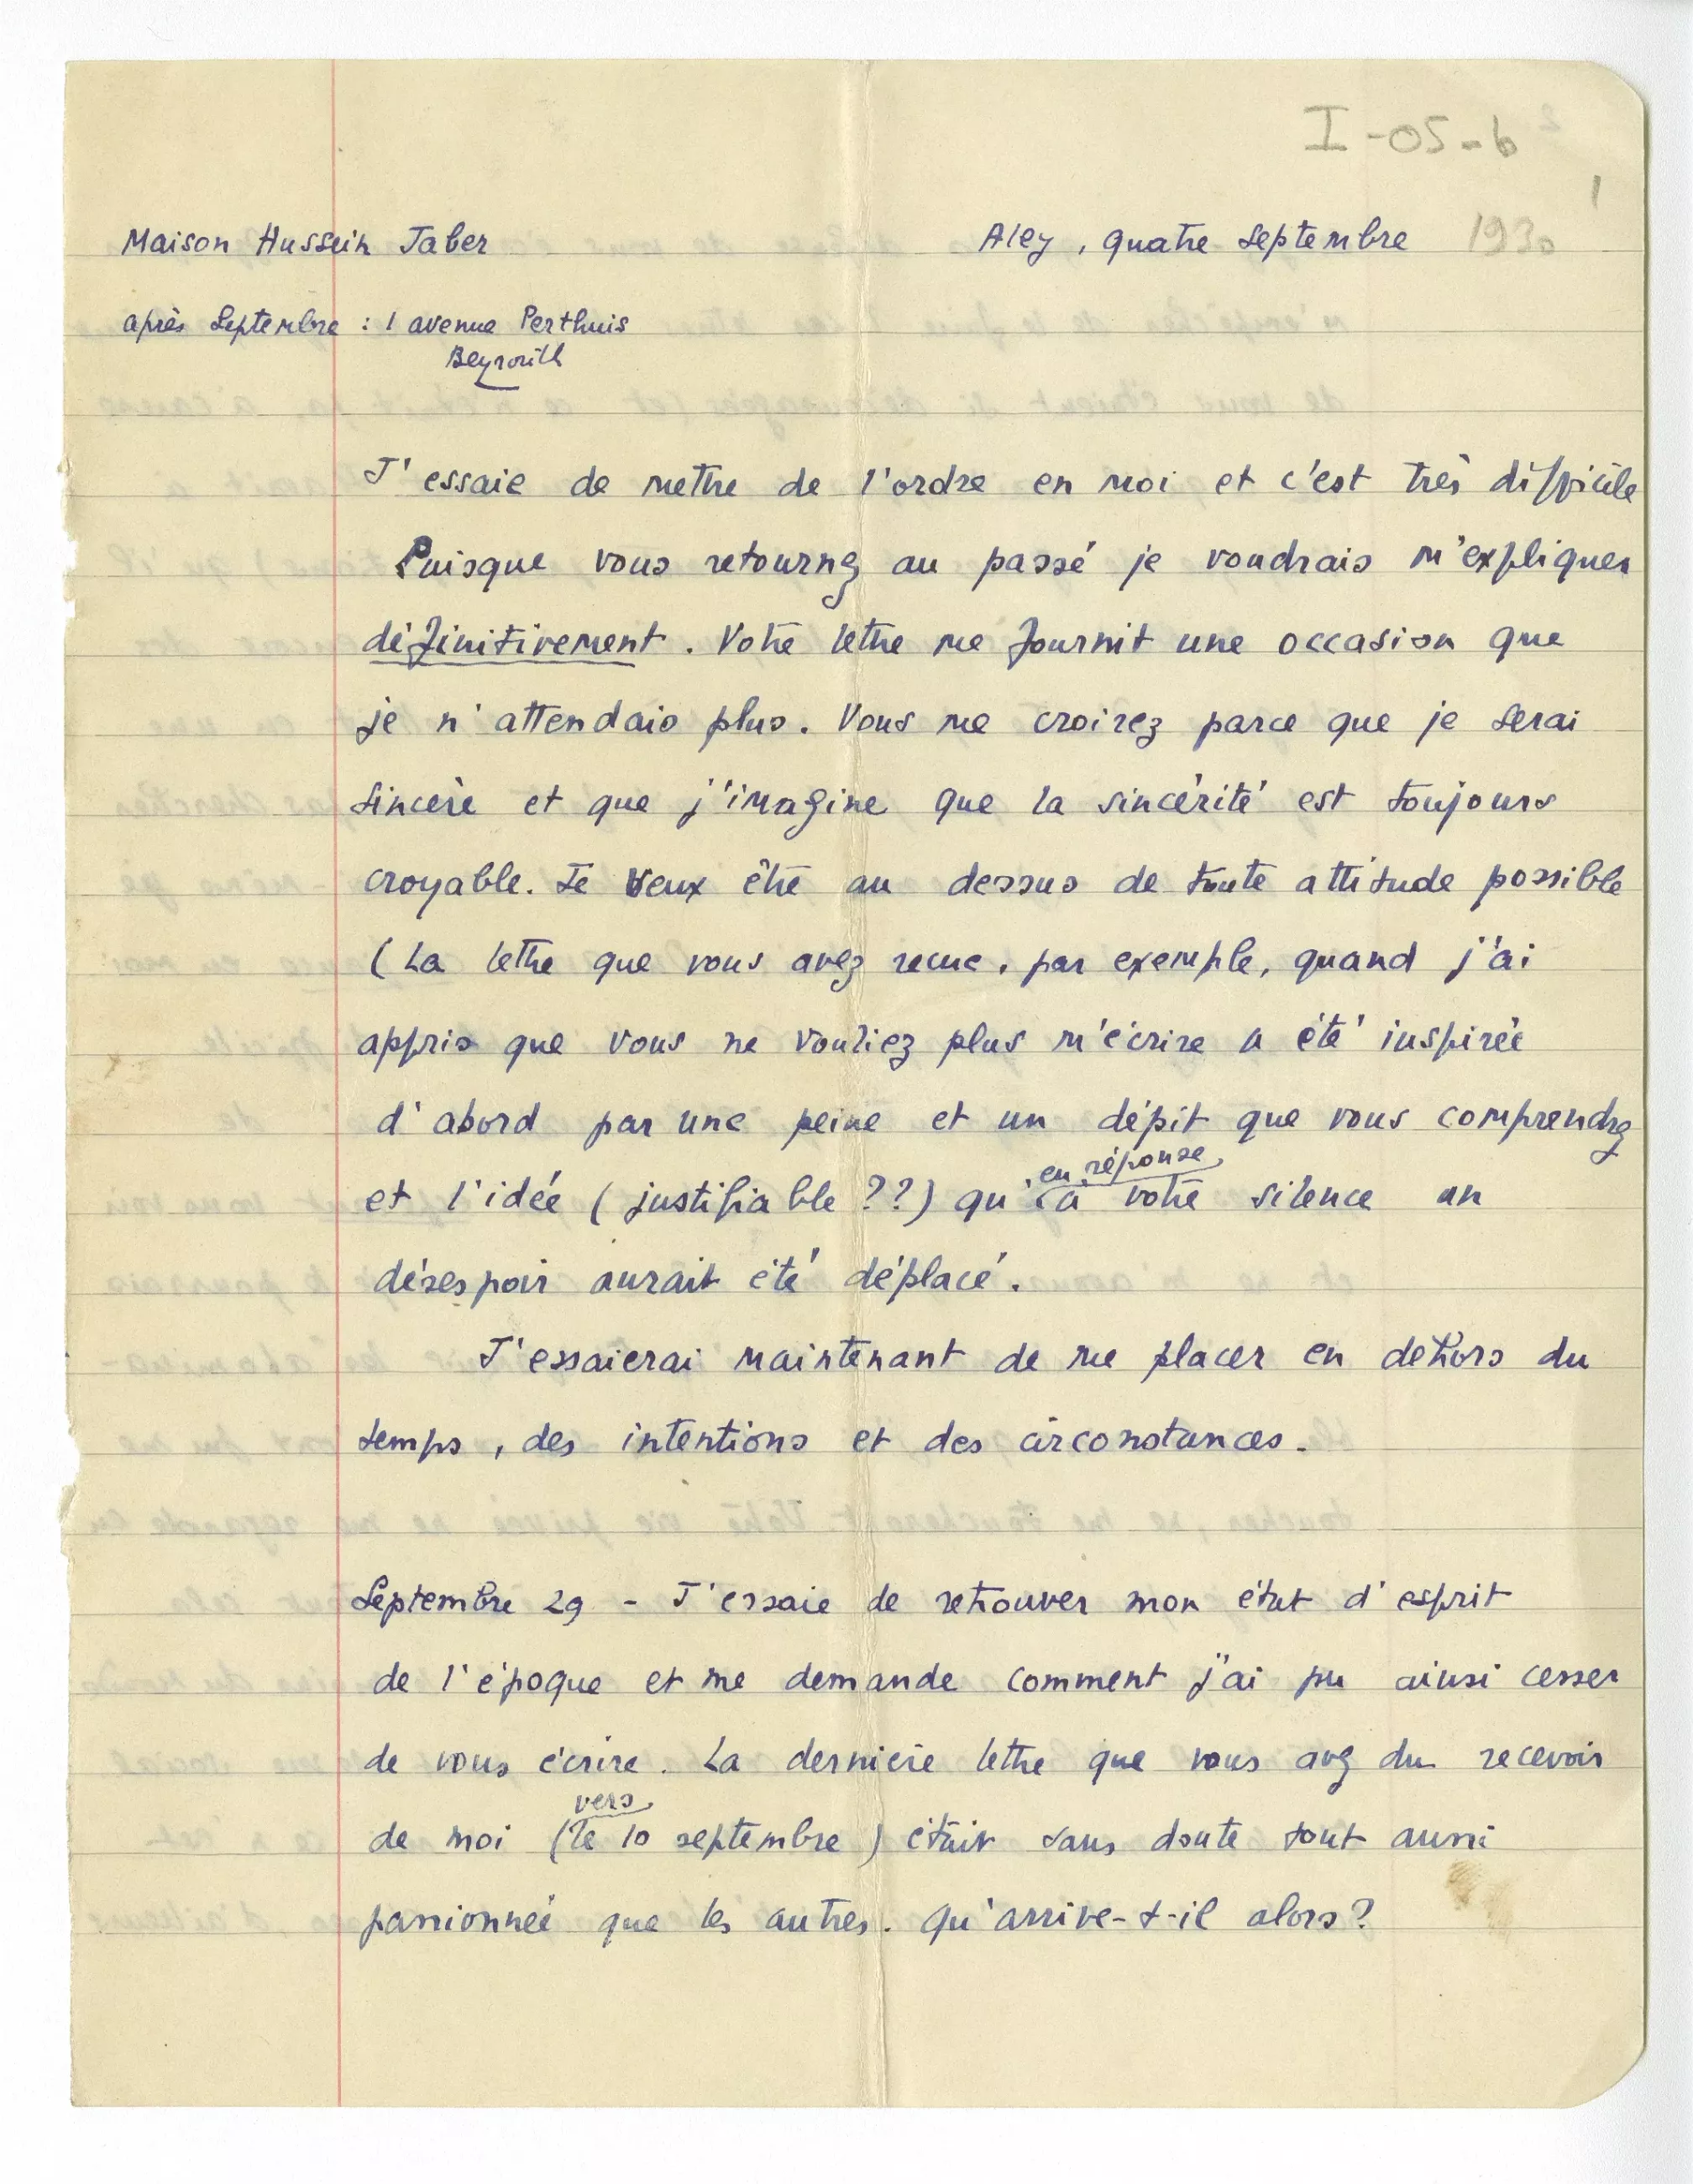 I-05-6
1
Maison Hussein Jaber
Aley, quatre Septembre 1930
après Septembre : 1 avenue Perthuis
Beyrouth
J'essaie de mettre de l'ordre en moi et c'est très difficile
Puisque vous retournez au passé je voudrais m'expliquer
définitivement. Votre lettre me fournit une occasion que
je n'attendais plus. Vous me croirez parce que je serai
sincère et que j'imagine que la sincérité est toujours
croyable. Je veux être au dessus de toute attitude possible
(La lettre que vous avez recue, par exemple, quand j'ai
appris que vous ne vouliez plus m'écrire a été inspirée
d'abord par une peine et un dépit que vous comprendrez
en réponse
et l'idée (justifiable ??) qu' à votre silence un
désespoir aurait été déplacé.
J'essaierai maintenant de me placer en dehors du
temps, des intentions et des circonstances.
Septembre 29 - J'essaie de retrouver mon état d'esprit
de l'époque et me demande comment j'ai pu ainsi cesser
de vous écrire. La dernière lettre que vous avez du recevoir
vers
de moi (le 10 septembre) était sans doute tout aussi
passionnée que les autres. Qu'arrive-t-il alors?